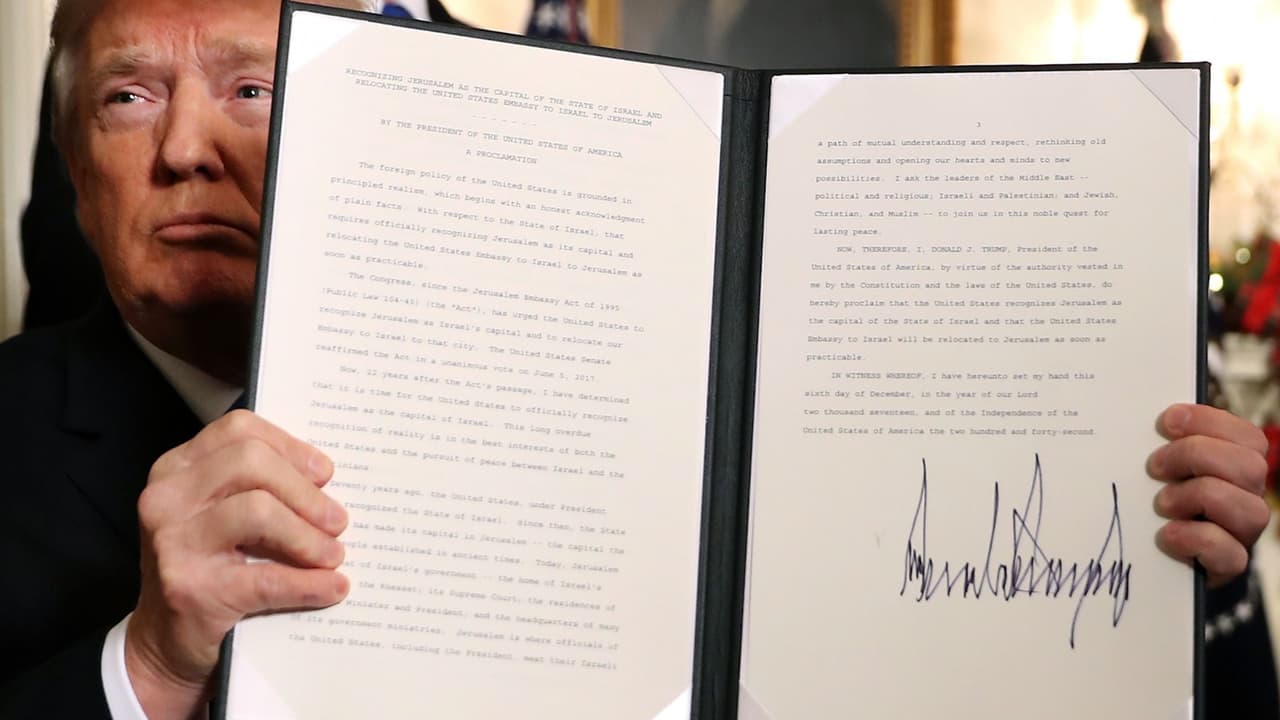 RECOGNIZING JERUSALEM AS THE CAPITAL OF THE STATE OF ISRAEL AND
RELOCATING THE UNITED STATES EMBASSY TO ISRAEL TO JERUSALEM
- - - - - - -
BY THE PRESIDENT OF THE UNITED STATES OF AMERICA
A PROCLAMATION
The foreign policy of the United States is grounded in
principled realism, which begins with an honest acknowledgment
of plain facts. With respect to the State of Israel, that
requires officially recognizing Jerusalem as its capital and
relocating the United States Embassy to Israel to Jerusalem as
soon as practicable.
The Congress, since the Jerusalem Embassy Act of 1995
(Public Law 104-45) (the "Act"), has urged the United States to
recognize Jerusalem as Israel's capital and to relocate our
Embassy to Israel to that city. The United States Senate
reaffirmed the Act in a unanimous vote on June 5, 2017.
Now, 22 years after the Act's passage, I have determined
that it is time for the United States to officially recognize
Jerusalem as the capital of Israel. This long overdue
recognition of reality is in the best interests of both the
United States and the pursuit of peace between Israel and the
inians.
Seventy years ago, the United States, under President
recognized the State of Israel. Since then, the State
has made its capital in Jerusalem -- the capital the
people established in ancient times. Today, Jerusalem
at of Israel's government -- the home of Israel's
the Knesset; its Supreme Court; the residences of
Minister and President; and the headquarters of many
of its government ministries. Jerusalem is where officials of
the United States, including the President, meet their Israeli
3
a path of mutual understanding and respect, rethinking old
assumptions and opening our hearts and minds to new
possibilities. I ask the leaders of the Middle East --
political and religious; Israeli and Palestinian; and Jewish,
Christian, and Muslim -- to join us in this noble quest for
lasting peace.
NOW, THEREFORE, I, DONALD J. TRUMP, President of the
United States of America, by virtue of the authority vested in
me by the Constitution and the laws of the United States, do
hereby proclaim that the United States recognizes Jerusalem as
the capital of the State of Israel and that the United States
Embassy to Israel will be relocated to Jerusalem as soon as
practicable.
IN WITNESS WHEREOF, I have hereunto set my hand this
sixth day of December, in the year of our Lord
two thousand seventeen, and of the Independence of the
United States of America the two hundred and forty-second.